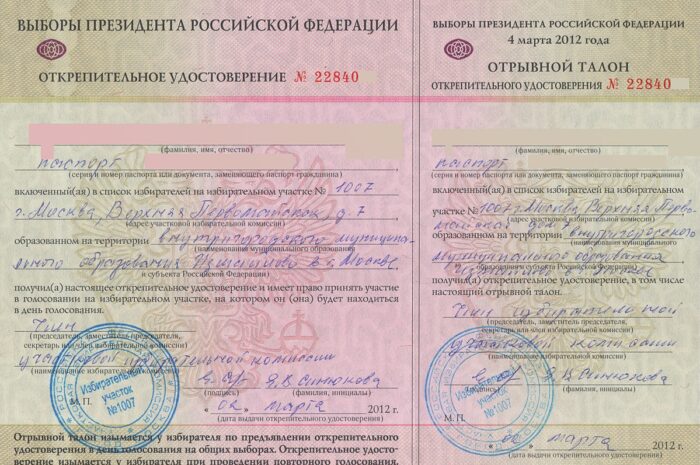 ВЫБОРЫ ПРЕЗИДЕНТА РОССИЙСКОЙ ФЕДЕРАЦИИ
ОТКРЕПИТЕЛЬНОЕ УДОСТОВЕРЕНИЕ № 22840
(фамилия, имя, отчество)
паспорт
(серия и номер паспорта или документа, заменяющего паспорт гражданина)
включенный(ая) в список избирателей на избирательном участке № 1007
г. Москва, Верхняя Первомайская, д. 7
(адрес участковой избирательной комиссии)
образованном на территории внутригородского муниципа-
(наименования муниципального образования
льного образования Измайлово в г. Москве
и субъекта Российской Федерации)
получил(а) настоящее открепительное удостоверение и имеет право принять участие
в голосовании на избирательном участке, на котором он (она) будет находиться
в день голосования.
Член
(председатель, заместитель председателя,
секретарь или член избирательной комиссии)
участковой избирательной комиссии
(наименование избирательной комиссии)
(подпись) (фамилия, инициалы)
М. П.
Избирательный
участок
№1007
"02" марта 2012 г.
(дата выдачи открепительного удостоверения)
Отрывной талон изымается у избирателя по предъявлении открепительного
удостоверения в день голосования на общих выборах. Открепительное удосто-
верение изымается у избирателя при проведении повторного голосования.
ВЫБОРЫ ПРЕЗИДЕНТА РОССИЙСКОЙ ФЕДЕРАЦИИ
4 марта 2012 года
ОТРЫВНОЙ ТАЛОН
ОТКРЕПИТЕЛЬНОГО УДОСТОВЕРЕНИЯ № 22840
(фамилия, имя, отчество)
паспорт
(серия и номер паспорта или документа, заменяющего паспорт гражданина)
включенный(ая) в список избирателей на избирательном
участке № 1007 г. Москва, Верхняя Перво-
(адрес участковой избирательной комиссии)
майская дом 7
образованном на территории внутригородского
(наименования муниципального
муниципального образования
образования и субъекта Российской Федерации)
получил(а) открепительное удостоверение, в том числе
настоящий отрывной талон.
Член избирательной
(председатель, заместитель председателя,
секретарь или член избирательной комиссии)
участковой комиссии
(наименование избирательной комиссии)
(подпись) (фамилия, инициалы)
М. П.
Избирательный
участок
№1007
марта 2012 г.
(дата выдачи открепительного удостоверения)